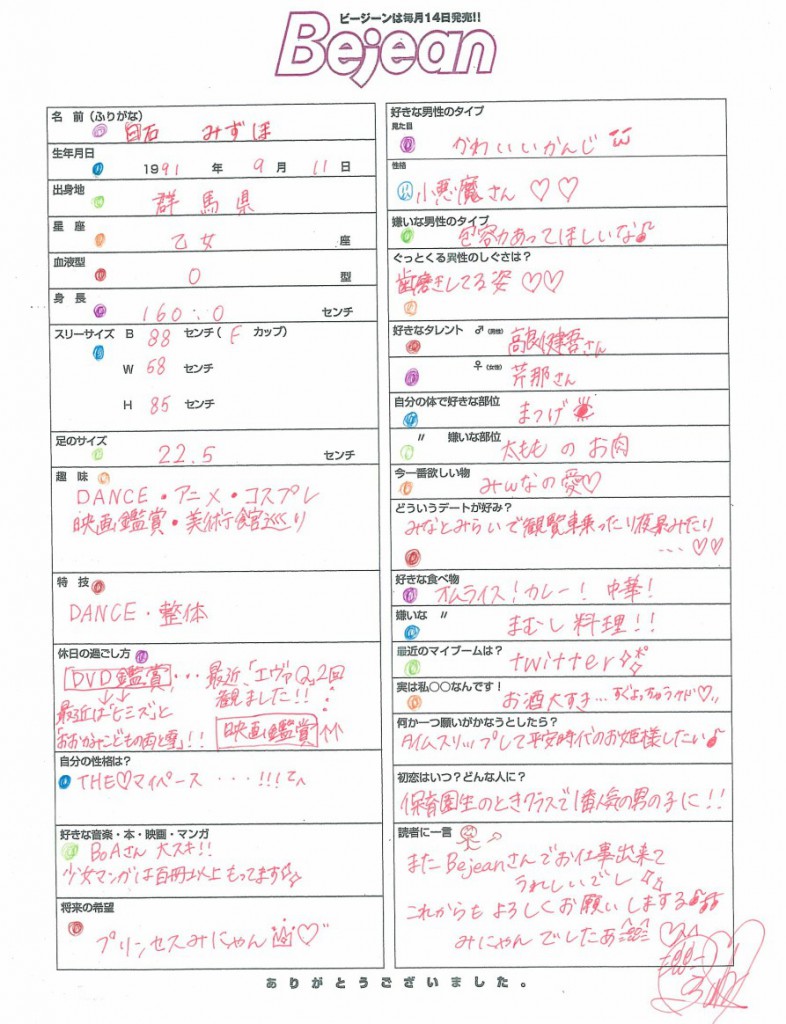 ビージーンは毎月14日発売!!
Bejean
名 前(ふりがな)
白石 みずほ
生年月日
1991 年 9 月 11 日
出身地
群馬県
星 座
乙女 座
血液型
O 型
身 長
160.0 センチ
スリーサイズ B 88 センチ( F カップ)
W 58 センチ
H 85 センチ
足のサイズ
22.5 センチ
趣 味
DANCE・アニメ・コスプレ
映画鑑賞・美術館巡り
特 技
DANCE・整体
休日の過ごし方
DVD鑑賞・・・最近、「エヴァQ」2回
観ました!!
最近は「ヒミズ」と
「おおかみこどもの雨と雪」!! 映画鑑賞↑↑
自分の性格は?
THE♡マイペース・・・!!!
好きな音楽・本・映画・マンガ
BoAさん 大スキ!!
少女マンガは百冊以上もってます
将来の希望
プリンセスみにゃん♡
好きな男性のタイプ
見た目
かわいいかんじ
性格
小悪魔さん♡♡
嫌いな男性のタイプ
包容力あってほしいな♪
ぐっとくる異性のしぐさは?
歯磨きしてる姿♡♡
好きなタレント ♂(男性) 高良健吾さん
♀(女性) 芹那さん
自分の体で好きな部位 まつげ
〃 嫌いな部位 太もものお肉
今一番欲しい物
みんなの愛♡
どういうデートが好み?
みなとみらいで観覧車乗ったり夜景みたり
・・・♡♡
好きな食べ物
オムライス!カレー!中華!
嫌いな 〃
まむし料理!!
最近のマイブームは?
twitter
実は私○○なんです!
お酒大すき…すぐよっちゃうケド♡
何か一つ願いがかなうとしたら?
タイムスリップして平安時代のお姫様したい♪
初恋はいつ?どんな人に?
保育園生のときクラスで1番人気の男の子に!!
読者に一言
またBejeanさんでお仕事出来て
うれしいでし
これからもよろしくお願いしまする
みにゃんでしたあ
ありがとうございました。